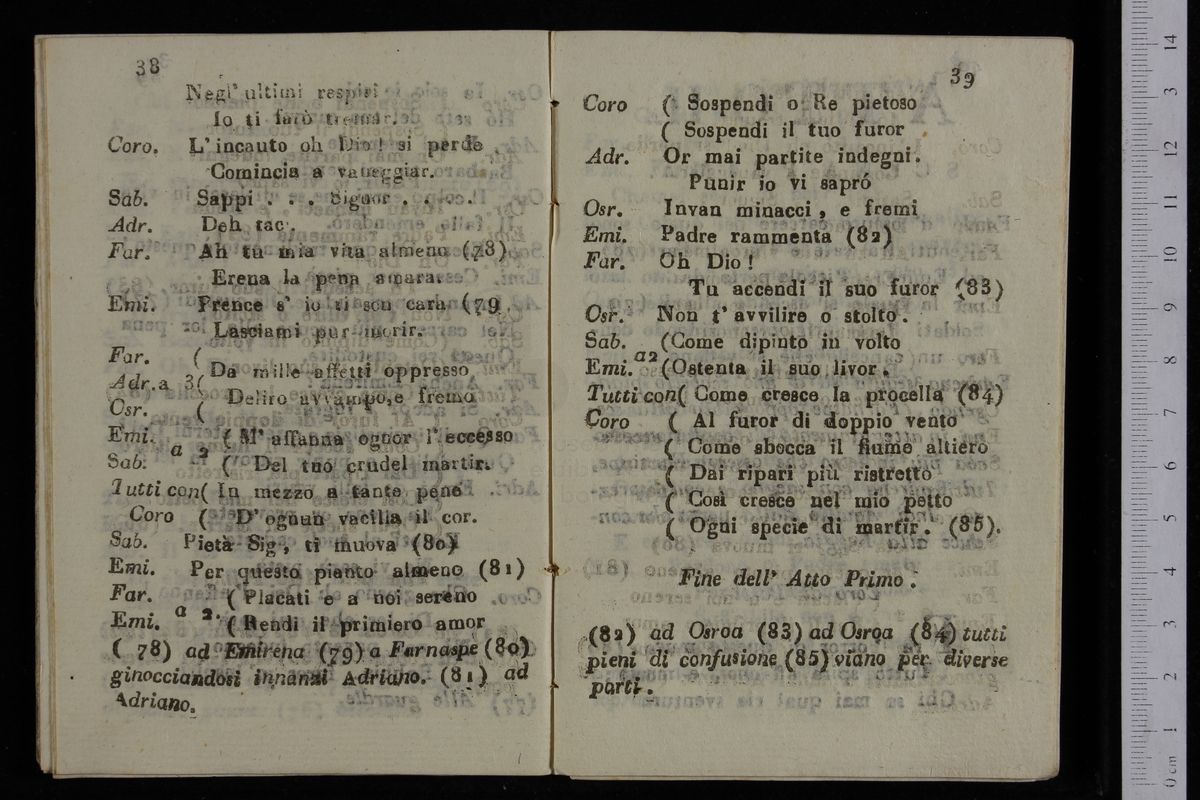 38
Negl' ultimi respiri
Io ti farò tremar.
Coro. L'incauto oh Dio! si perde
Comincia a vaneggiar.
Sab. Sappi . . . Signor . . . .
Adr. Deh tac .
Far. Ah tu mia vita almeno (78)
Erena la pena amara.
Emi. Prence s' io ti son cara (79
Lasciami pur morir.
Far. (
Da mille affetti oppresso
Adr. a 3(
Deliro avvampo, e fremo
Osr. (
Emi. ( M' affanna ognor l' eccesso
a 2
Sab. ( Del tuo crudel martir.
Tutti con( In mezzo a tante pene
Coro ( D' ognun vacilla il cor.
Sab. Pietà Sig, ti muova (80)
Emi. Per questo pianto almeno (81)
Far. ( Placati e a noi sereno
a 2.
Emi. ( Rendi il primiero amor
( 78) ad Emirena (79) a Farnaspe (80)
ginocciandosi innanzi Adriano. (81) ad
Adriano.
39
Coro ( Sospendi o Re pietoso
( Sospendi il tuo furor
Adr. Or mai partite indegni.
Punir io vi sapró
Osr. Invan minacci, e fremi
Emi. Padre rammenta (82)
Far. Oh Dio!
Tu accendi il suo furor (83)
Osr. Non t' avvilire o stolto.
Sab. (Come dipinto in volto
a2
Emi. (Ostenta il suo livor.
Tutti con( Come cresce la procella (84)
Coro ( Al furor di doppio vento
( Come sbocca il fiume altiero
( Dai ripari più ristretto
( Così cresce nel mio petto
( Ogni specie di martir. (85).
Fine dell' Atto Primo.
(82) ad Osroa (83) ad Osroa (84) tutti
pieni di confusione (85) viano per diverse
parti.